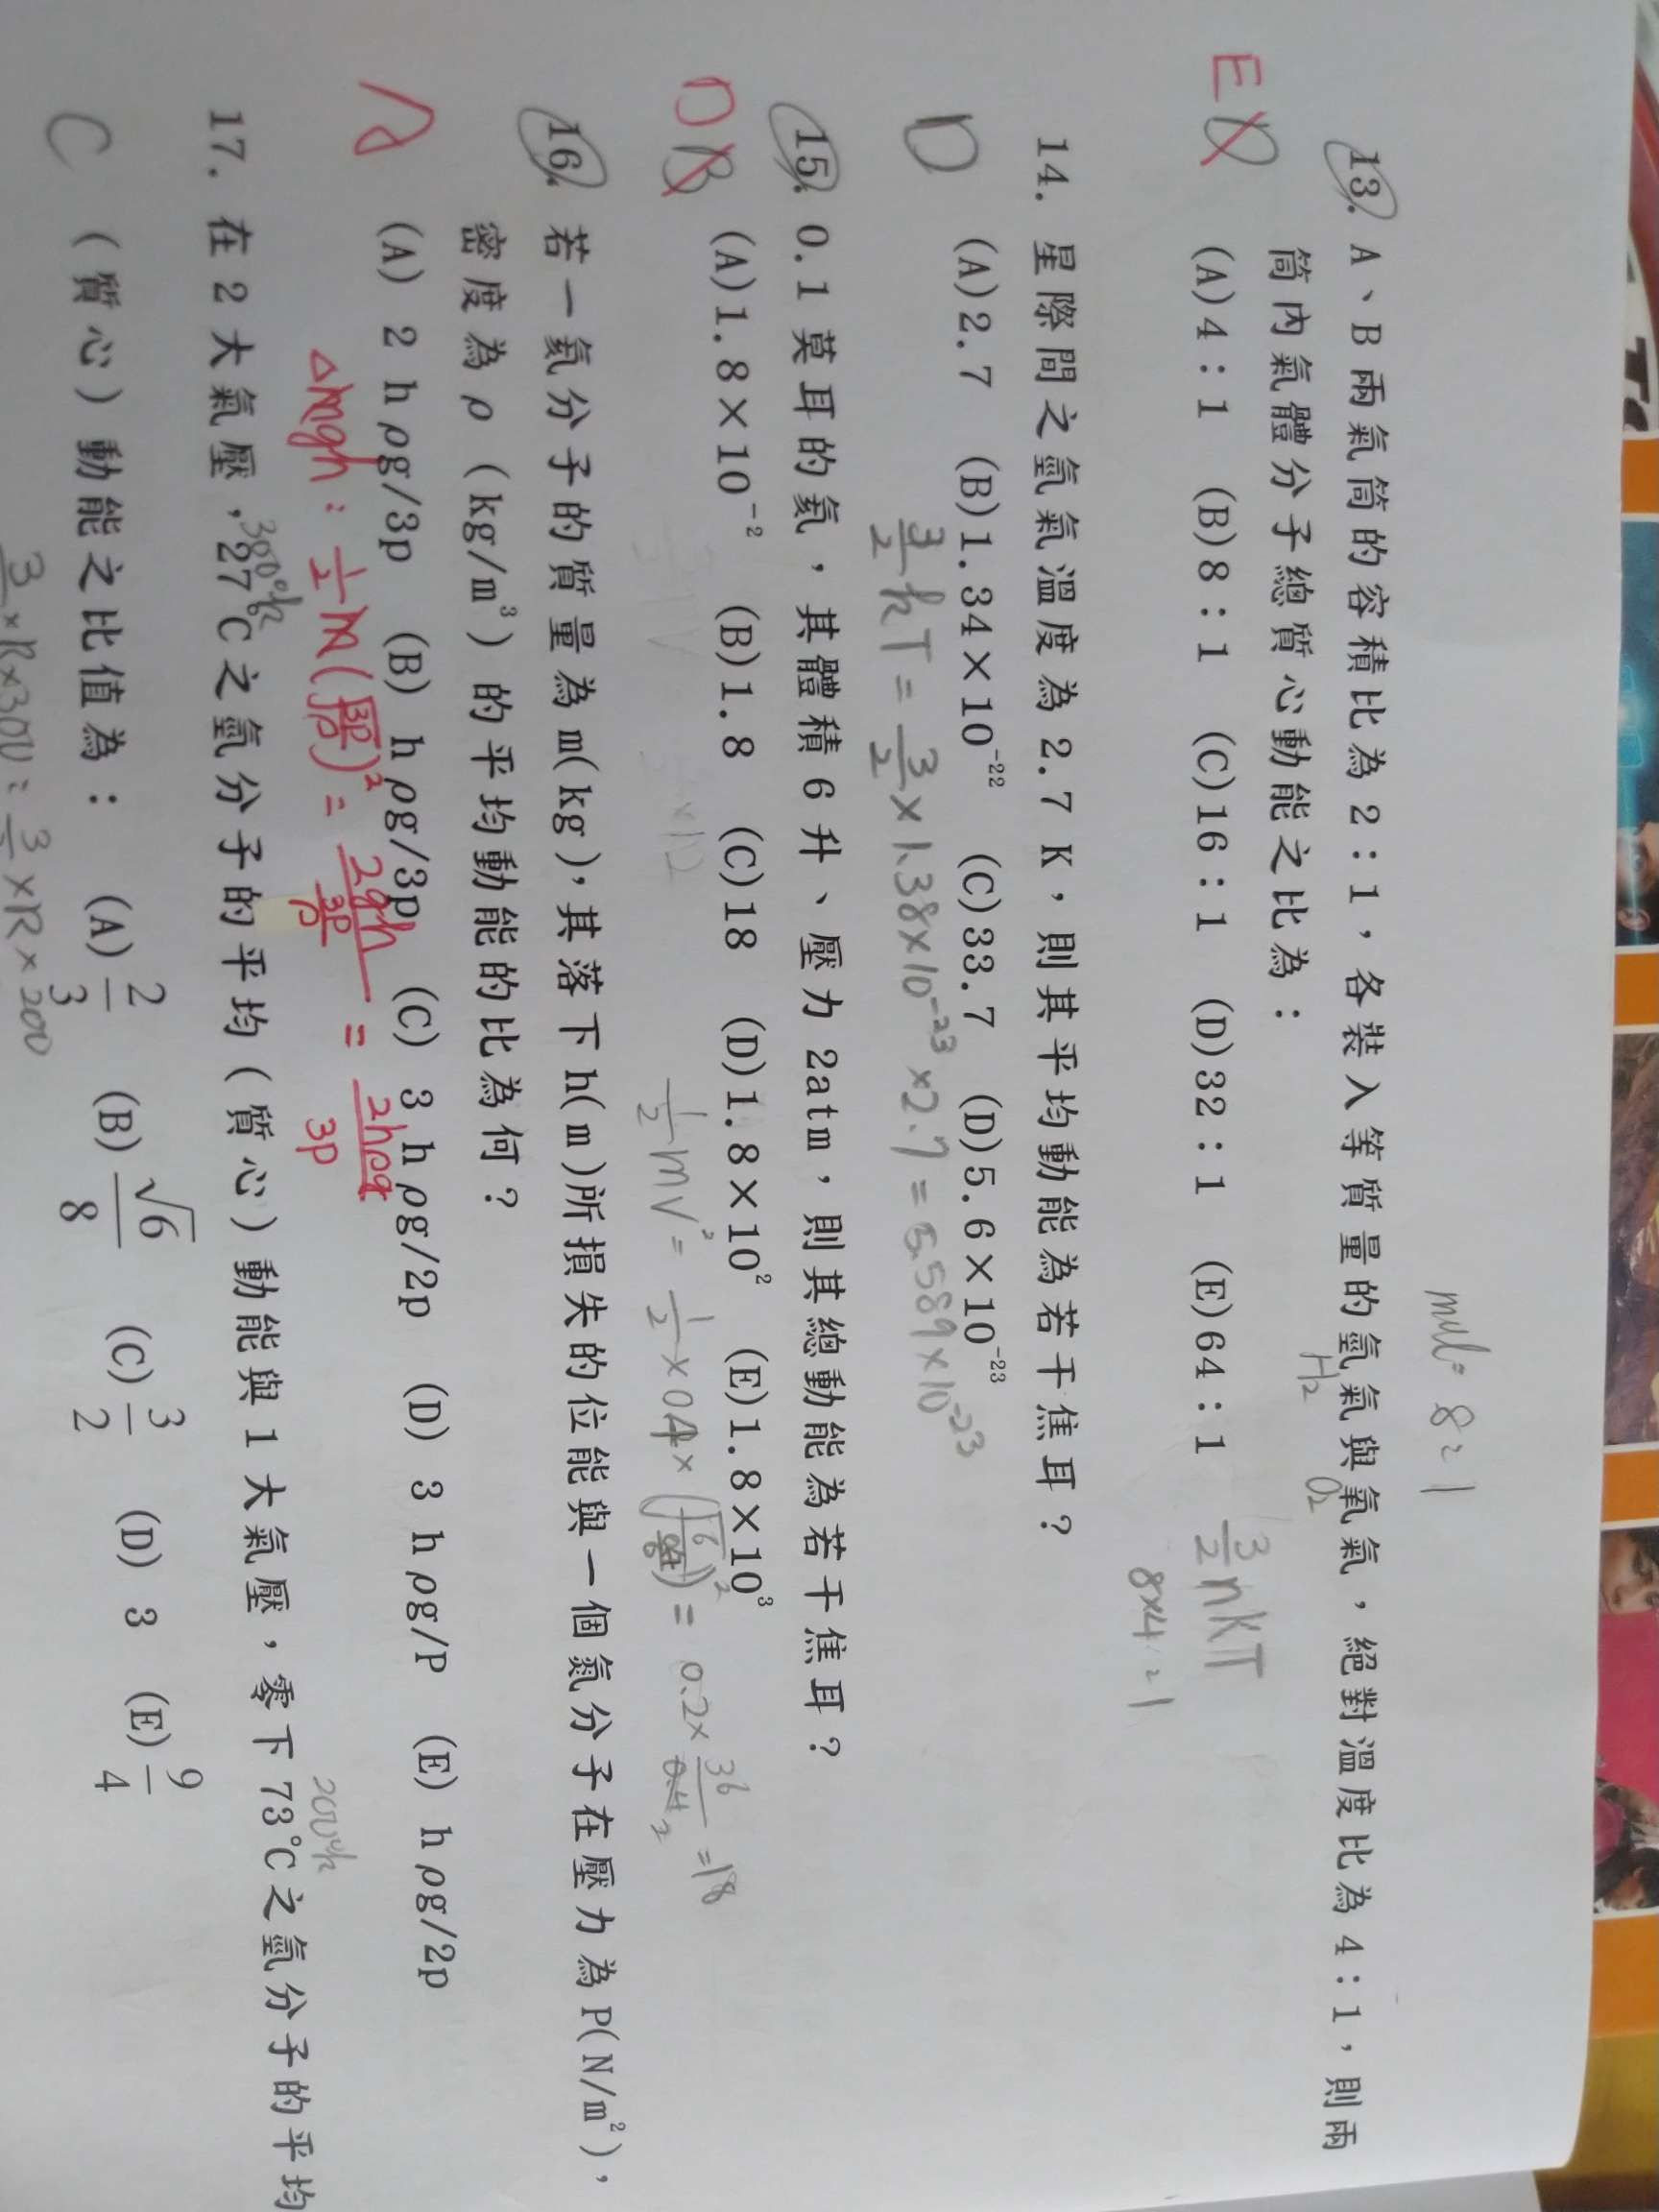 mol = 8 : 1
13. A、B兩氣筒的容積比為2:1，各裝入等質量的氫氣與氧氣，絕對溫度比為4:1，則兩
H₂ O₂
筒內氣體分子總質心動能之比為：
E D (A)4:1 (B)8:1 (C)16:1 (D)32:1 (E)64:1 3/2 nKT
8×4 : 1
14. 星際間之氫氣溫度為2.7 K，則其平均動能為若干焦耳？
D (A)2.7 (B)1.34×10⁻²² (C)33.7 (D)5.6×10⁻²³
3/2 kT = 3/2 × 1.38×10⁻²³ ×2.7 = 5.589×10⁻²³
15. 0.1莫耳的氦，其體積6升、壓力2atm，則其總動能為若干焦耳？
D B (A)1.8×10⁻² (B)1.8 (C)18 (D)1.8×10² (E)1.8×10³
1/2 mV² = 1/2 × 0.4 × = 0.2× 36/0.4 = 18
16. 若一氦分子的質量為m(kg)，其落下h(m)所損失的位能與一個氮分子在壓力為P(N/m²)，
密度為ρ（kg/m³）的平均動能的比為何？
A (A) 2 hρg/3p (B) hρg/3p (C) 3 hρg/2p (D) 3 hρg/P (E) hρg/2p
mgh : 1/2 m(√3P/√ρ)² = 2gh/(3P/ρ) = 2hρg/3P
17. 在2大氣壓，27℃之氫分子的平均（質心）動能與1大氣壓，零下73℃之氫分子的平均
300°k 200°k
C （質心）動能之比值為： (A) 2/3 (B) √6/8 (C) 3/2 (D) 3 (E) 9/4
3/2 ×R×300 : 3/2 ×R×200